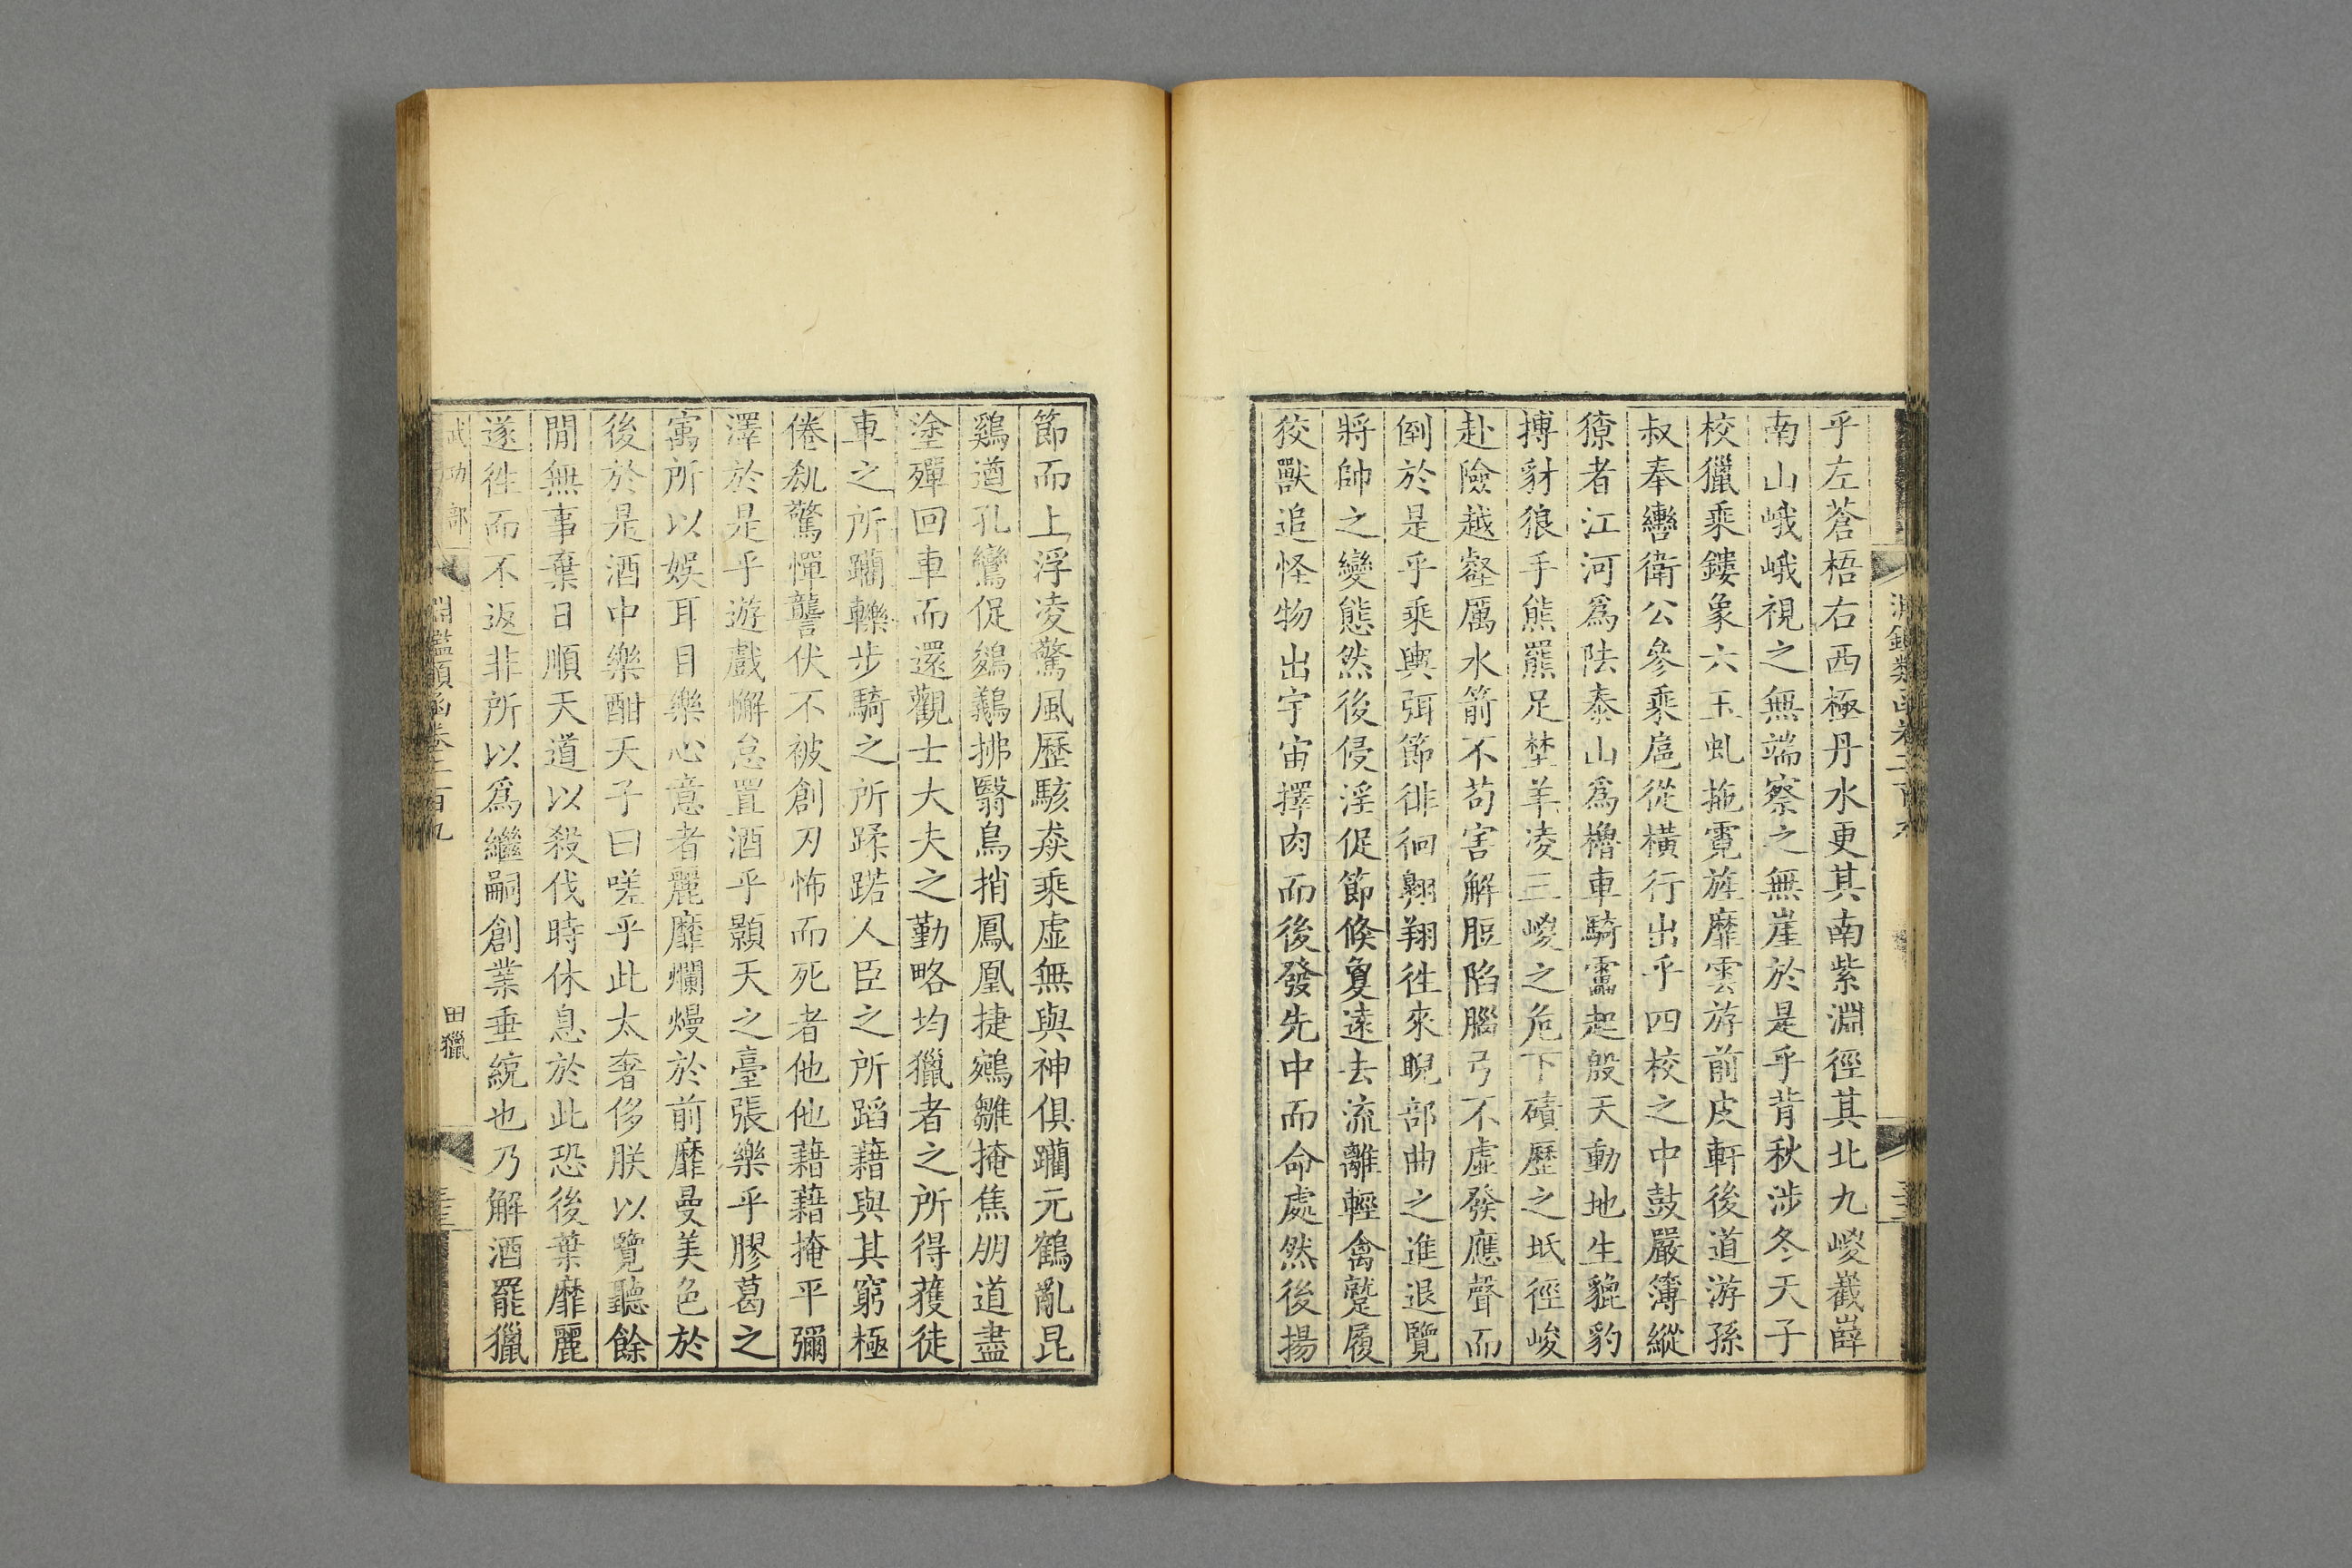 乎左蒼梧右西極丹水更其南紫淵徑其北九嵕嶻嶭
南山峨峨視之無端察之無崖於是乎背秋涉冬天子
校獵乘鏤象六玉虬拖霓旌靡雲游前皮軒後道游孫
叔奉轡衛公參乘扈從橫行出乎四校之中鼓嚴簿縱
獠者江河爲阹泰山爲櫓車騎靁起殷天動地生貔豹
搏豺狼手熊羆足埜羊凌三嵕之危下磧歷之坻徑峻
赴險越壑厲水箭不苟害解脰陷腦弓不虛發應聲而
倒於是乎乘輿弭節徘徊翱翔徃來睨部曲之進退覽
將帥之變態然後侵淫促節倏敻遠去流離輕禽蹵履
狡獸追怪物出宇宙擇肉而後發先中而命處然後揚
節而上浮凌驚風歷駭猋乘虛無與神俱躪元鶴亂昆
鷄遒孔鸞促鵕鸃拂翳鳥捎鳳凰捷鵷雛掩焦朋道盡
塗殫回車而還觀士大夫之勤略均獵者之所得獲徒
車之所躪轢步騎之所蹂踏人臣之所蹈藉與其窮極
倦㕁驚憚讋伏不被創刃怖而死者他他藉藉掩平彌
澤於是乎遊戲懈怠置酒乎顥天之臺張樂乎膠葛之
寓所以娛耳目樂心意者麗靡爛熳於前靡曼美色於
後於是酒中樂酣天子曰嗟乎此太奢侈朕以覽聽餘
閒無事棄日順天道以殺伐時休息於此恐後葉靡麗
遂徃而不返非所以爲繼嗣創業垂統也乃解酒罷獵
武功部
淵鑑類函卷二百九
田獵